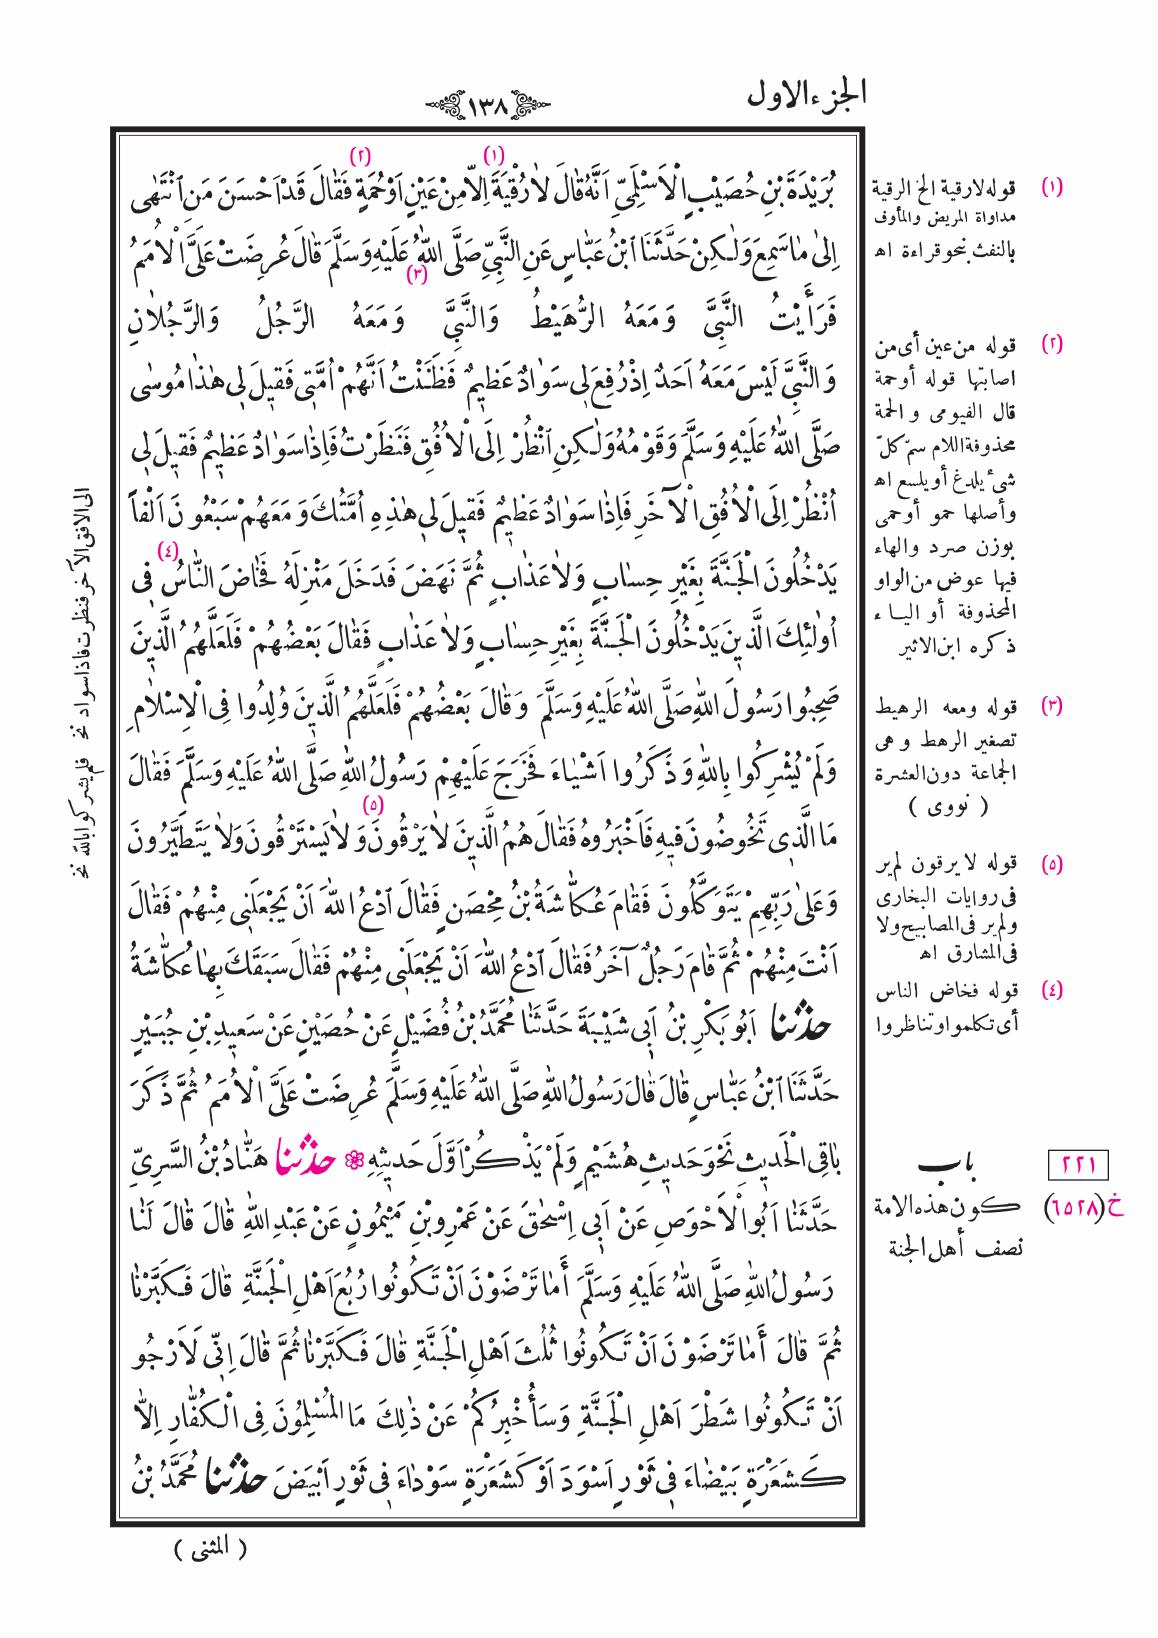 الجزء الاول
١٣٨
بُرَيْدَةَ بْنِ حُصَيْبٍ الْاَسْلَمِىِّ اَنَّهُ قَالَ لَا رُقْيَةَ (١) اِلاَّ مِنْ عَيْنٍ اَوْ حُمَةٍ (٢) فَقَالَ قَدْ اَحْسَنَ مَنِ انْتَهٰى
اِلىٰ مٰا سَمِعَ وَلٰكِنْ حَدَّثَنَا ابْنُ عَبّٰاسٍ عَنِ النَّبِىِّ صَلَّى اللّٰهُ عَلَيْهِ وَسَلَّمَ قٰالَ عُرِضَتْ عَلَىَّ الْاُمَمُ
فَرَأَيْتُ النَّبِىَّ وَمَعَهُ الرُّهَيْطُ (٣) وَالنَّبِىَّ وَمَعَهُ الرَّجُلُ وَالرَّجُلاٰنِ
وَالنَّبِىَّ لَيْسَ مَعَهُ اَحَدٌ اِذْ رُفِعَ لِى سَوٰادٌ عَظِيمٌ فَظَنَنْتُ اَنَّهُمْ اُمَّتِى فَقِيلَ لِى هٰذٰا مُوسٰى
صَلَّى اللّٰهُ عَلَيْهِ وَسَلَّمَ وَقَوْمُهُ وَلٰكِنِ انْظُرْ اِلَى الْاُفُقِ فَنَظَرْتُ فَاِذٰا سَوٰادٌ عَظِيمٌ فَقِيلَ لِى
اُنْظُرْ اِلَى الْاُفُقِ الْآخَرِ فَاِذٰا سَوٰادٌ عَظِيمٌ فَقِيلَ لِى هٰذِهِ اُمَّتُكَ وَمَعَهُمْ سَبْعُونَ اَلْفاً
يَدْخُلُونَ الْجَنَّةَ بِغَيْرِ حِسٰابٍ وَلاٰ عَذٰابٍ ثُمَّ نَهَضَ فَدَخَلَ مَنْزِلَهُ فَخٰاضَ النّٰاسُ (٤) فِى
اُولٰئِكَ الَّذِينَ يَدْخُلُونَ الْجَنَّةَ بِغَيْرِ حِسٰابٍ وَلاٰ عَذٰابٍ فَقٰالَ بَعْضُهُمْ فَلَعَلَّهُمُ الَّذِينَ
صَحِبُوا رَسُولَ اللّٰهِ صَلَّى اللّٰهُ عَلَيْهِ وَسَلَّمَ وَقٰالَ بَعْضُهُمْ فَلَعَلَّهُمُ الَّذِينَ وُلِدُوا فِى الْاِسْلاٰمِ
وَلَمْ يُشْرِكُوا بِاللّٰهِ وَذَكَرُوا اَشْيٰاءَ فَخَرَجَ عَلَيْهِمْ رَسُولُ اللّٰهِ صَلَّى اللّٰهُ عَلَيْهِ وَسَلَّمَ فَقٰالَ
مَا الَّذِى تَخُوضُونَ فِيهِ فَاَخْبَرُوهُ فَقٰالَ هُمُ الَّذِينَ لاٰ يَرْقُونَ (٥) وَلاٰ يَسْتَرْقُونَ وَلاٰ يَتَطَيَّرُونَ
وَعَلىٰ رَبِّهِمْ يَتَوَكَّلُونَ فَقٰامَ عُكّٰاشَةُ بْنُ مِحْصَنٍ فَقٰالَ ادْعُ اللّٰهَ اَنْ يَجْعَلَنِى مِنْهُمْ فَقٰالَ
اَنْتَ مِنْهُمْ ثُمَّ قٰامَ رَجُلٌ آخَرُ فَقٰالَ ادْعُ اللّٰهَ اَنْ يَجْعَلَنِى مِنْهُمْ فَقٰالَ سَبَقَكَ بِهٰا عُكّٰاشَةُ
حدثنا اَبُو بَكْرِ بْنُ اَبِى شَيْبَةَ حَدَّثَنٰا مُحَمَّدُ بْنُ فُضَيْلٍ عَنْ حُصَيْنٍ عَنْ سَعِيدِ بْنِ جُبَيْرٍ
حَدَّثَنَا ابْنُ عَبّٰاسٍ قٰالَ قٰالَ رَسُولُ اللّٰهِ صَلَّى اللّٰهُ عَلَيْهِ وَسَلَّمَ عُرِضَتْ عَلَىَّ الْاُمَمُ ثُمَّ ذَكَرَ
بٰاقِىَ الْحَدِيثِ نَحْوَ حَدِيثِ هُشَيْمٍ وَلَمْ يَذْكُرْ اَوَّلَ حَدِيثِهِ حدثنا هَنّٰادُ بْنُ السَّرِىِّ
حَدَّثَنٰا اَبُو الْاَحْوَصِ عَنْ اَبِى اِسْحٰقَ عَنْ عَمْرِو بْنِ مَيْمُونٍ عَنْ عَبْدِ اللّٰهِ قٰالَ قٰالَ لَنٰا
رَسُولُ اللّٰهِ صَلَّى اللّٰهُ عَلَيْهِ وَسَلَّمَ أَمٰا تَرْضَوْنَ اَنْ تَكُونُوا رُبُعَ اَهْلِ الْجَنَّةِ قٰالَ فَكَبَّرْنٰا
ثُمَّ قٰالَ أَمٰا تَرْضَوْنَ اَنْ تَكُونُوا ثُلُثَ اَهْلِ الْجَنَّةِ قٰالَ فَكَبَّرْنٰا ثُمَّ قٰالَ اِنِّى لَاَرْجُو
اَنْ تَكُونُوا شَطْرَ اَهْلِ الْجَنَّةِ وَسَأُخْبِرُكُمْ عَنْ ذٰلِكَ مَا الْمُسْلِمُونَ فِى الْكُفّٰارِ اِلاّٰ
كَشَعْرَةٍ بَيْضٰاءَ فِى ثَوْرٍ اَسْوَدَ اَوْ كَشَعْرَةٍ سَوْدٰاءَ فِى ثَوْرٍ اَبْيَضَ حدثنا مُحَمَّدُ بْنُ
( المثنى )
(١) قوله لا رقية الخ الرقية
مداواة المريض والمأوف
بالنفث بنحو قراءة اه
(٢) قوله من عين أى من
اصابتها قوله أو حمة
قال الفيومى والحمة
محذوفة اللام سمّ كلّ
شئ يلدغ أو يلسع اه
وأصلها حمو أو حمى
بوزن صرد والهاء
فيها عوض من الواو
المحذوفة أو الياء
ذكره ابن الاثير
(٣) قوله ومعه الرهيط
تصغير الرهط وهى
الجماعة دون العشرة
( نووى )
(٥) قوله لا يرقون لم ير
فى روايات البخارى
ولم ير فى المصابيح ولا
فى المشارق اه
(٤) قوله فخاض الناس
أى تكلموا وتناظروا
باب ٢٢١
كون هذه الامة خ (٦٥٢٨)
نصف أهل الجنة
الى الافق الآخر فنظرت فاذا سواد نخ فلم يشركوا بالله نخ